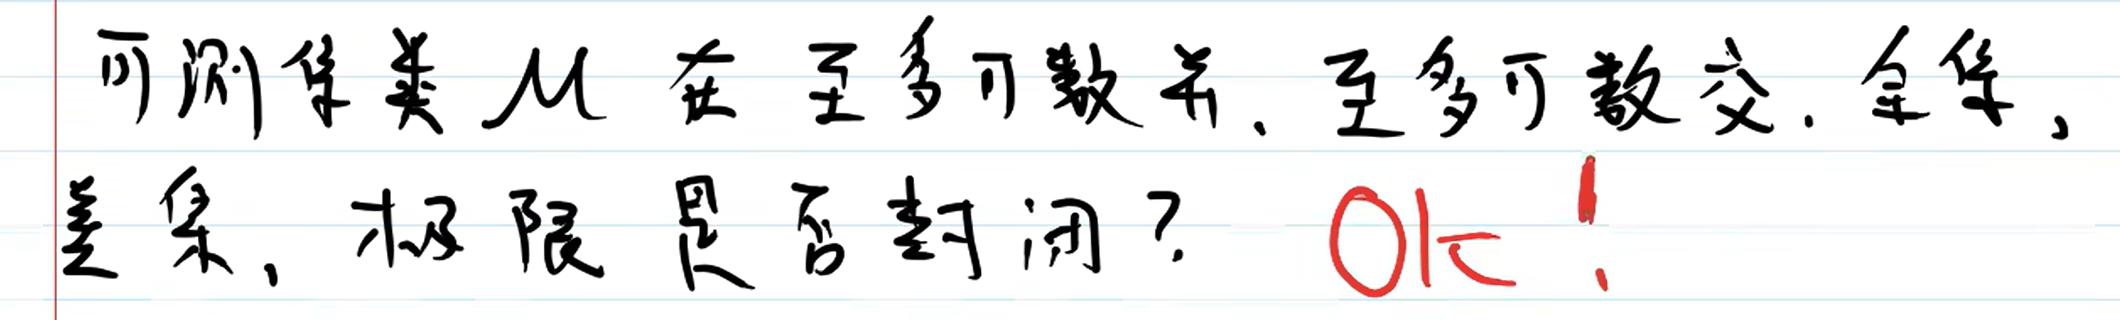 可测集类 M 在至多可数并、至多可数交、余集,
差集、极限是否封闭? Ok!